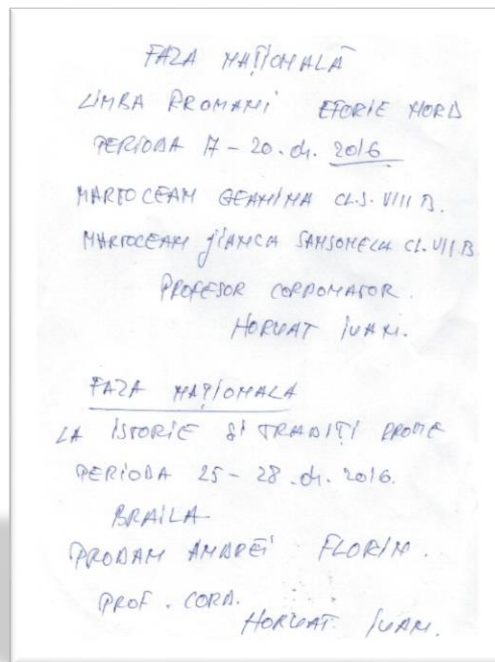 FAZA NAȚIONALĂ
LIMBA RROMANI EFORIE NORD
PERIODA 17-20.04.2016
MARTOCEAN GEANINA CL.S. VIII B.
MARTOCEAN BIANCA SANSONELA CL. VII B
PROFESOR CORDONATOR.
HORVAT IVAN.
FAZA NAȚIONALA
LA ISTORIE ȘI TRADIȚI RROME
PERIODA 25-28.04.2016.
BRAILA
PRODAN ANDREI FLORIN.
PROF. CORD.
HORVAT IVAN.